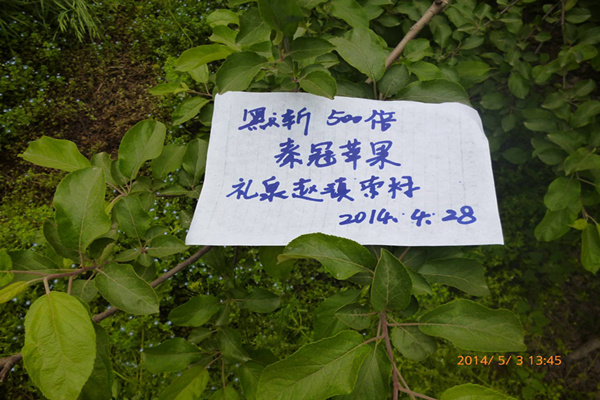 黑斩 500倍
秦冠苹果
礼泉赵镇索村
2014. 4. 28
2014/ 5/ 3 13:45